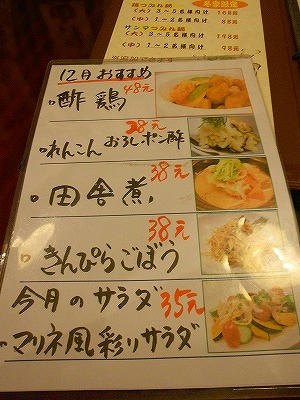 鶏つみれ鍋
(大) 3~5名様向け 168元
(中) 1~2名様向け 88元
サンマつみれ鍋
(大) 3~5名様向け 148元
(中) 1~2名様向け 78元
12月おすすめ
酢鶏 48元
れんこんおろしポン酢 28元
田舎煮 38元
きんぴらごぼう 38元
今月のサラダ 35元
マリネ風彩りサラダ